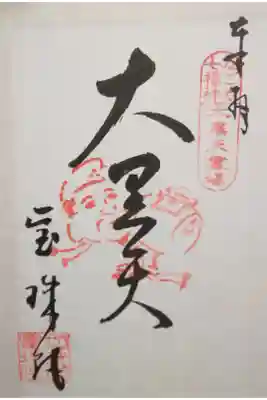 奉拝
大黒天
宝珠院